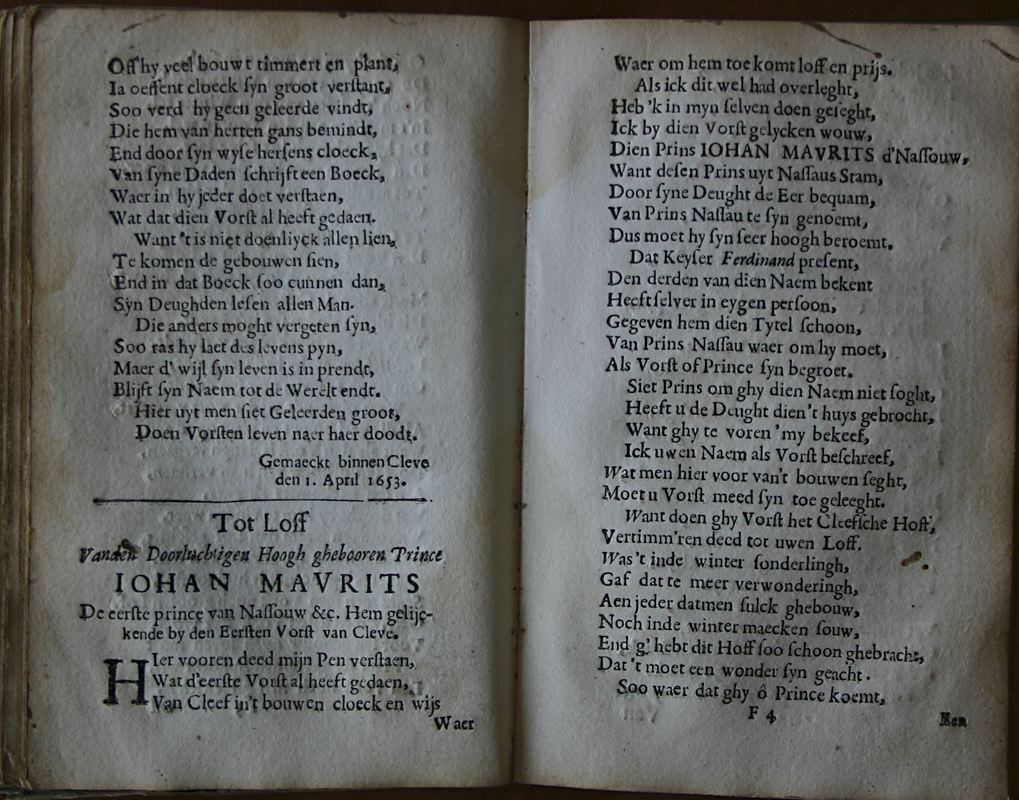 Off hy veel bouwt timmert en plant,
Ia oeffent cloeck ſyn groot verſtant,
Soo verd hy geen geleerde vindt,
Die hem van herten gans bemindt,
End door ſyn wyſe herſens cloeck,
Van ſyne Daden ſchrijft een Boeck,
Waer in hy jeder doet verſtaen,
Wat dat dien Vorſt al heeft gedaen.
Want 't is niet doenliyck allen lien,
Te komen de gebouwen ſien,
End in dat Boeck ſoo cunnen dan,
Syn Deughden leſen allen Man.
Die anders moght vergeten ſyn,
Soo ras hy laet des levens pyn,
Maer d' wijl ſyn leven is in prendt,
Blijft ſyn Naem tot de Werelt endt.
Hier uyt men ſiet Geleerden groot,
Doen Vorſten leven naer haer doodt.
Gemaeckt binnen Cleve
den 1. April 1653.
Tot Loff
Vanden Doorluchtigen Hoogh ghebooren Prince
IOHAN MAVRITS
De eerſte prince van Naſſouw &c. Hem gelijc-
kende by den Eerſten Vorſt van Cleve.
HIer vooren deed mijn Pen verſtaen,
Wat d'eerſte Vorſt al heeft gedaen,
Van Cleef in't bouwen cloeck en wijs
Waer
Waer om hem toe komt loff en prijs.
Als ick dit wel had overleght,
Heb 'k in myn ſelven doen geſeght,
Ick by dien Vorſt gelycken wouw,
Dien Prins IOHAN MAVRITS d'Naſſouw,
Want deſen Prins uyt Naſſaus Stam,
Door ſyne Deught de Eer bequam,
Van Prins Naſſau te ſyn genoemt,
Dus moet hy ſyn ſeer hoogh beroemt.
Dat Keyſer Ferdinand preſent,
Den derden van dien Naem bekent
Heeft ſelver in eygen perſoon,
Gegeven hem dien Tytel ſchoon,
Van Prins Naſſau waer om hy moet,
Als Vorſt of Prince ſyn begroet.
Siet Prins om ghy dien Naem niet ſoght,
Heeft u de Deught dien't huys gebrocht,
Want ghy te voren 'my bekeef,
Ick uwen Naem als Vorſt beſchreef,
Wat men hier voor van't bouwen ſeght,
Moet u Vorſt meed ſyn toe geleeght.
Want doen ghy Vorſt het Cleefſche Hoff,
Vertimm'ren deed tot uwen Loff.
Was't inde winter ſonderlingh,
Gaf dat te meer verwonderingh,
Aen jeder datmen ſulck ghebouw,
Noch inde winter maecken ſouw,
End g' hebt dit Hoff ſoo ſchoon ghebracht,
Dat 't moet een wonder ſyn geacht.
Soo waer dat ghy ô Prince koemt,
F 4
Een